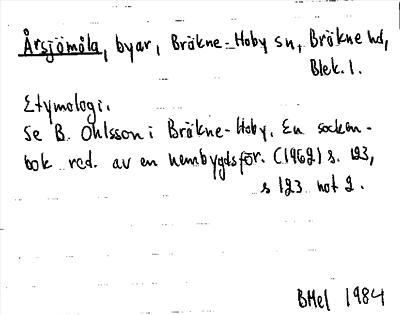 Årsjömåla, byar, Bräkne-Hoby sn, Bräkne hd,
Blek. l.
Etymologi.
Se B. Ohlsson i Bräkne-Hoby. En socken-
bok red. av en hembygdsför. (1962) s. 123,
s 123 not 2.
BHel 1984